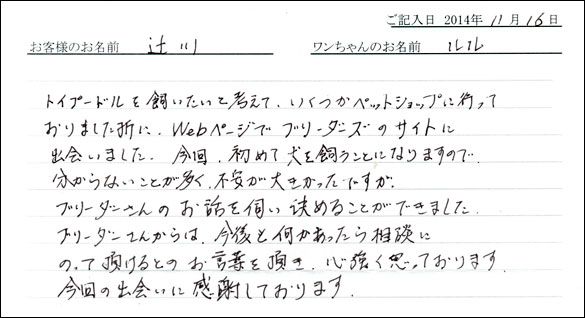 ご記入日 2014年 11月 16日
お客様のお名前 辻川 ワンちゃんのお名前 ルル
トイプードルを飼いたいと考えて、いくつかペットショップに行って
おりました折に、Webページでブリーダーズのサイトに
出会いました。今回、初めて犬を飼うことになりますので、
分からないことが多く、不安が大きかったですが、
ブリーダーさんのお話を伺い決めることができました。
ブリーダーさんからは、今後と何かあったら相談に
のって頂けるとのお言葉を頂き、心強く思っております。
今回の出会いに感謝しております。